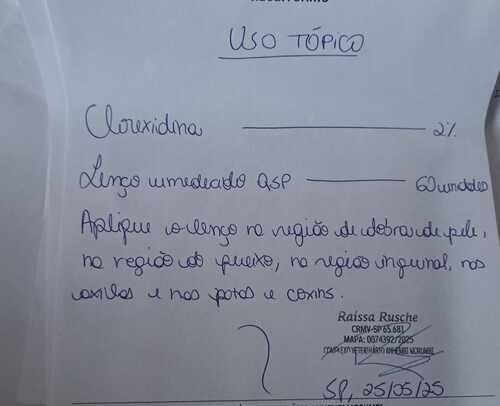 USO TÓPICO
Clorexidina ——— 2%
Lenço umedecido QSP ——— 60 unidades
Aplique o lenço na região de dobras de pele,
na região do queixo, na região inguinal, nas
axilas e nas patas e coxins.
Raíssa Rusche
CRMV-SP 65.681
MAPA: 0074392/2025
COMPLEXO VETERINÁRIO ANHEMBI MORUMBI
SP, 25/05/25